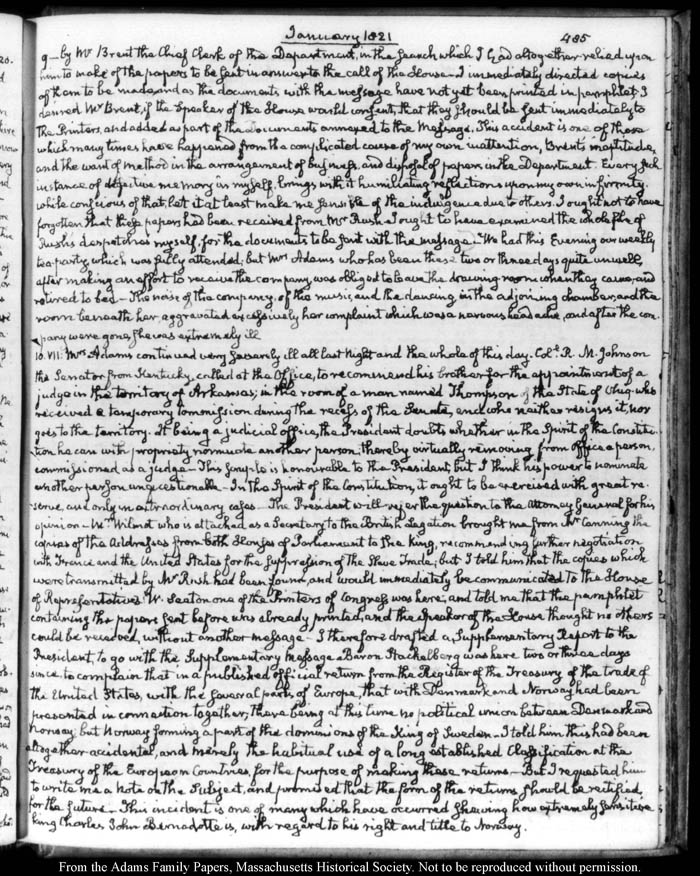 January 1821
485
9— by Mr Brent the Chief Clerk of the Department, in the search which I had altogether relied upon
him to make of the papers to be sent in answer to the call of the House— I immediately directed copies
of them to be made, and as the documents with the message have not yet been printed in pamphlet, I
desired Mr Brent, if the Speaker of the House would consent, that they should be sent immediately to
the Printers, and added as part of the documents annexed to the Message. This accident is one of those
which many times have happened from the complicated cause of my own inattention, Brent's inaptitude,
and the want of method in the arrangement of business, and disposal of papers in the Department. Every such
instance of defective memory in myself, brings with it humiliating reflections upon my own infirmity.
while conscious of that, let it at least make me sensible of the indulgence due to others. I ought not to have
forgotten that these papers had been received from Mr Rush. I ought to have examined the whole file of
Rush's despatches myself, for the documents to be sent with the message. We had this Evening our weekly
tea-party, which was fully attended; but Mrs Adams who has been these two or three days quite unwell,
after making an effort to receive the company, was obliged to leave the drawing room when they came, and
retired to bed— The noise of the company, of the music, and the dancing, in the adjoining chamber, and the
room beneath her, aggravated excessively her complaint which was a nervous head ache, and after the com-
pany were gone, she was extremely ill
10. VII. Mrs Adams continued very severely ill all last Night and the whole of this day. Coll. R. M. Johnson
the Senator from Kentucky, called at the Office, to recommend his brother for the appointment of a
judge in the territory of Arkansas; in the room of a man named Thompson of the State of Ohio, who
received a temporary commission during the recess of the Senate, and who neither resigns it, nor
goes to the territory. It being a judicial office, the President doubts whether in the Spirit of the Constitu-
tion he can with propriety nominate another person, thereby virtually removing from Office a person,
commissioned as a judge— This scruple is honourable to the President, but I think his power to nominate
another person unquestionable— In the Spirit of the Constitution, it ought to be exercised with great re-
serve and only in extraordinary cases— The President will refer the question to the Attorney General for his
opinion— Mr Wilmot who is attached as a Secretary to the British Legation brought me from Mr Canning the
copies of the Addresses from both Houses of Parliament to the King, recommending further negotiation
with France and the United States for the suppression of the Slave Trade; but I told him that the copies which
were transmitted by Mr Rush had been found, and would immediately be communicated to the House
of Representatives. W. Seaton one of the Printers of Congress was here, and told me that the pamphlet
containing the papers sent before was already printed, and the Speaker of the House thought no others
could be received, without another message— I therefore drafted a Supplementary Report to the
President, to go with the Supplementary Message. Baron Stackelberg was here two or three days
since to complain that in a published official return from the Register of the Treasury of the trade of
the United States, with the several parts of Europe, that with Denmark and Norway had been
presented in connection together, there being at this time no political union between Denmark and
Norway; but Norway forming a part of the dominions of the King of Sweden— I told him this had been
altogether accidental, and merely the habitual use of a long established Classification at the
Treasury of the European Countries, for the purpose of making these returns— But I requested him
to write me a Note on the Subject, and promised that the form of the returns should be rectified,
for the future— This incident is one of many which have occurred shewing how extremely sensitive
King Charles John Bernadotte is, with regard to his right and title to Norway.
From the Adams Family Papers, Massachusetts Historical Society. Not to be reproduced without permission.